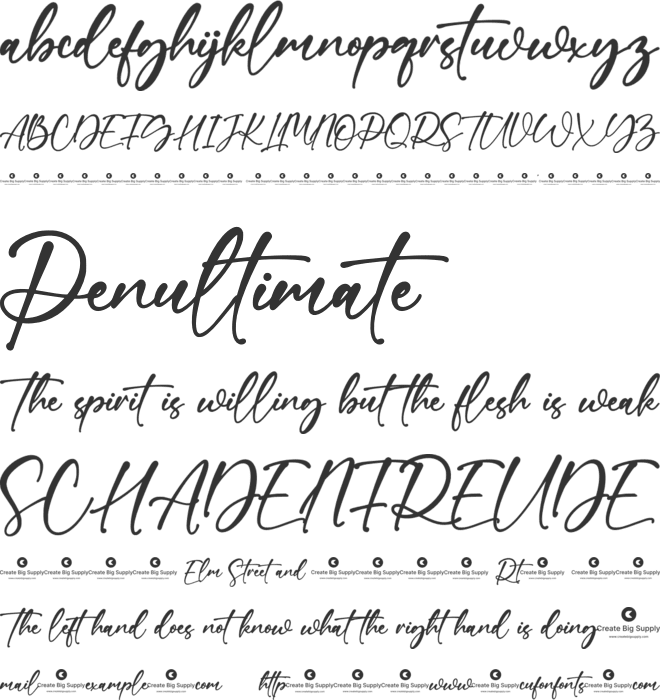 abcdefghijklmnopqrstuvwxyz
ABCDEFGHIJKLMNOPQRSTUVWXYZ
Create Big Supply Create Big Supply Create Big Supply Create Big Supply Create Big Supply Create Big Supply Create Big Supply Create Big Supply Create Big Supply Create Big Supply
Penultimate
The spirit is willing but the flesh is weak
SCHADENFREUDE
Create Big Supply Create Big Supply Create Big Supply Create Big Supply Elm Street and Create Big Supply Create Big Supply Create Big Supply Create Big Supply Rt Create Big Supply Create Big Supply Create Big Supply
The left hand does not know what the right hand is doing Create Big Supply
mail Create Big Supply example Create Big Supply com http Create Big Supply Create Big Supply Create Big Supply www Create Big Supply cufonfonts Create Big Supply com